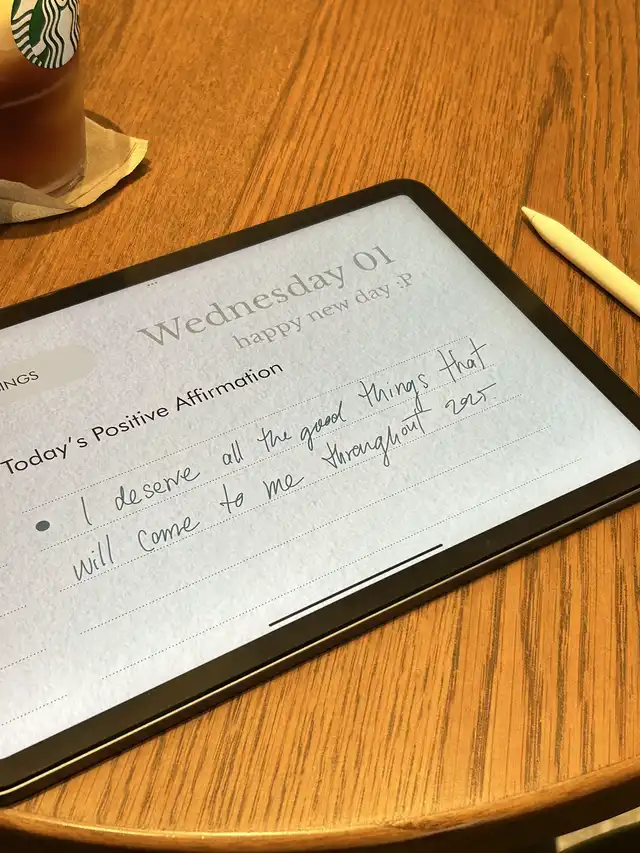 Wednesday 01
happy new day :P
INGS
Today's Positive Affirmation
I deserve all the good things that
will come to me throughout 2025.